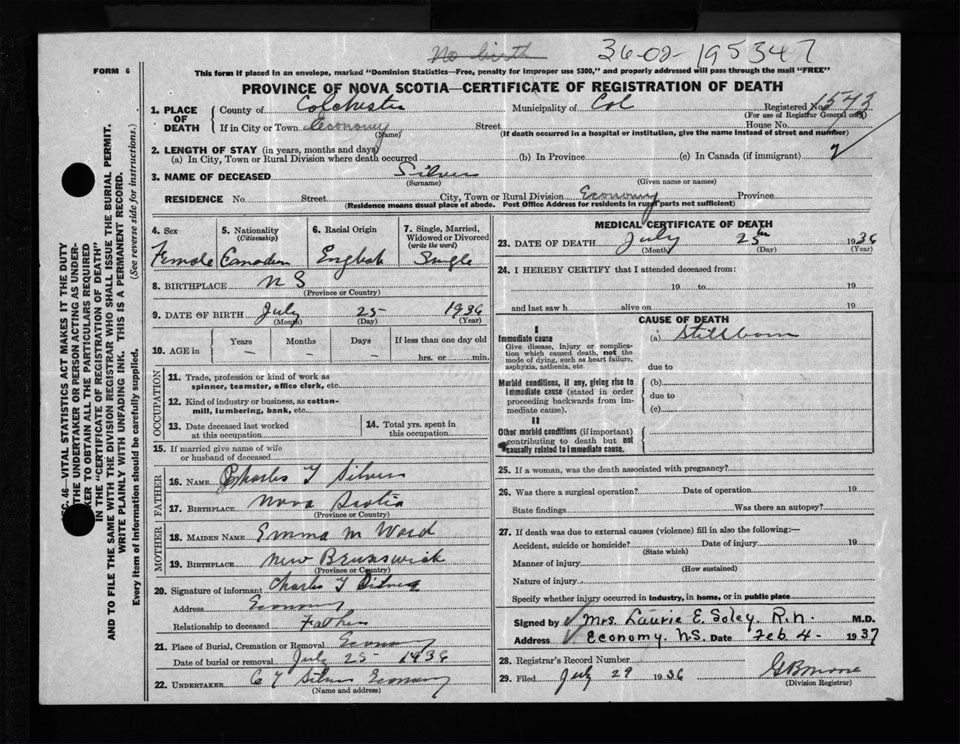 No birth 36-02-195347
FORM 6
This form if placed in an envelope, marked "Dominion Statistics—Free, penalty for improper use $300," and properly addressed will pass through the mail "FREE"
PROVINCE OF NOVA SCOTIA—CERTIFICATE OF REGISTRATION OF DEATH
SEC. 46—VITAL STATISTICS ACT MAKES IT THE DUTY
THE UNDERTAKER OR PERSON ACTING AS UNDER-
KER TO OBTAIN ALL THE PARTICULARS REQUIRED
IN THE "CERTIFICATE OF REGISTRATION OF DEATH"
AND TO FILE THE SAME WITH THE DIVISION REGISTRAR WHO SHALL ISSUE THE BURIAL PERMIT.
WRITE PLAINLY WITH UNFADING INK. THIS IS A PERMANENT RECORD.
Every item of Information should be carefully supplied. (See reverse side for instructions.)
1. PLACE OF DEATH
County of Colchester Municipality of Col Registered No. 1543
(For use of Registrar General only)
If in City or Town Economy Street House No.
(Name) (If death occurred in a hospital or institution, give the name instead of street and number)
2. LENGTH OF STAY (in years, months and days)
(a) In City, Town or Rural Division where death occurred (b) In Province (c) In Canada (if immigrant)
3. NAME OF DECEASED Silver
(Surname) (Given name or names)
RESIDENCE No. Street City, Town or Rural Division Economy Province
(Residence means usual place of abode. Post Office Address for residents in rural parts not sufficient)
4. Sex 5. Nationality (Citizenship) 6. Racial Origin 7. Single, Married, Widowed or Divorced (write the word)
Female Canadian English Single
8. BIRTHPLACE N S
(Province or Country)
9. DATE OF BIRTH July 25 1936
(Month) (Day) (Year)
10. AGE in Years Months Days If less than one day old
hrs. or min.
OCCUPATION
11. Trade, profession or kind of work as
spinner, teamster, office clerk, etc.
12. Kind of industry or business, as cotton-
mill, lumbering, bank, etc.
13. Date deceased last worked
at this occupation
14. Total yrs. spent in
this occupation
15. If married give name of wife
or husband of deceased
FATHER
16. NAME Charles T Silver
17. BIRTHPLACE Nova Scotia
(Province or Country)
MOTHER
18. MAIDEN NAME Emma M Ward
19. BIRTHPLACE New Brunswick
(Province or Country)
20. Signature of informant Charles T Silver
Address Economy
Relationship to deceased Father
21. Place of Burial, Cremation or Removal Economy
Date of burial or removal July 25 1936
22. UNDERTAKER C T Silver Economy
(Name and address)
MEDICAL CERTIFICATE OF DEATH
23. DATE OF DEATH July 25th 1936
(Month) (Day) (Year)
24. I HEREBY CERTIFY that I attended deceased from:
19 to 19
and last saw h alive on 19
CAUSE OF DEATH
I
Immediate cause (a) Stillborn
Give disease, injury or complica-
tion which caused death, not the
mode of dying, such as heart failure,
asphyxia, asthenia, etc.
due to
Morbid conditions, if any, giving rise to
immediate cause (stated in order
proceeding backwards from im-
mediate cause).
(b)
due to
(c)
II
Other morbid conditions (if important)
contributing to death but not
causally related to immediate cause.
25. If a woman, was the death associated with pregnancy?
26. Was there a surgical operation? Date of operation 19
State findings Was there an autopsy?
27. If death was due to external causes (violence) fill in also the following:—
Accident, suicide or homicide? Date of injury 19
(State which)
Manner of injury
(How sustained)
Nature of injury
Specify whether injury occurred in industry, in home, or in public place
Signed by Mrs. Laurie E. Soley. R.n. M.D.
Address Economy. N.S. Date Feb 4- 1937
28. Registrar's Record Number
29. Filed July 29 1936 G B Moore
(Division Registrar)